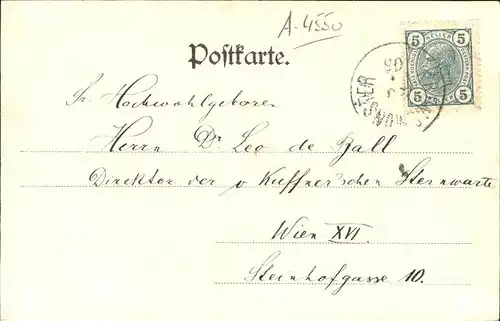 A-4550
Postkarte.
5 HELLER 5
5 5
Sr. Hochwohlgeboren
Herrn Dr Leo de Ball
Direktor der v Kuffner'schen Sternwarte
Wien XVI.
Steinhofgasse 10.